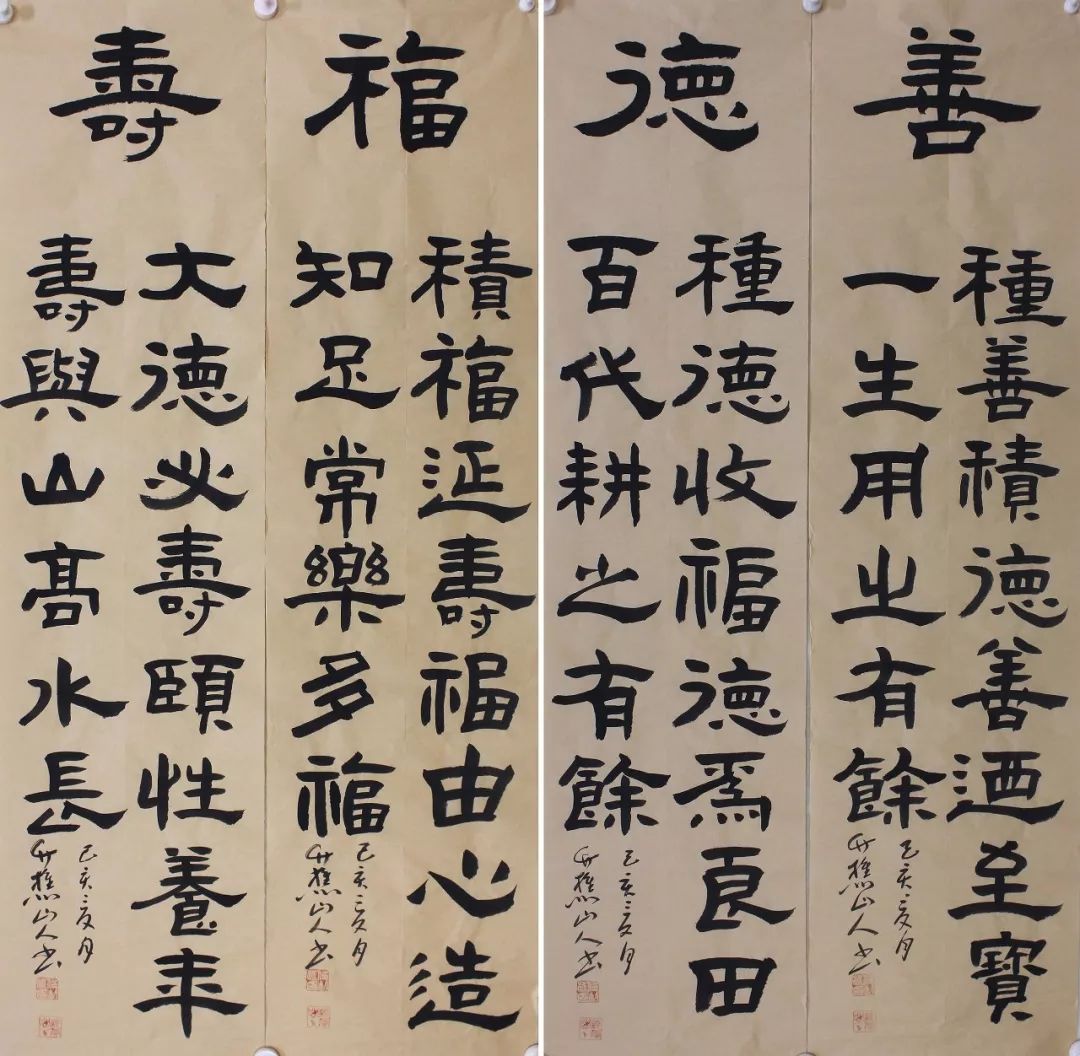 善
種善積德善迺至寶
一生用之有餘
己亥夏月
竹樵山人書
德
種德收福德爲良田
百代耕之有餘
己亥夏月
竹樵山人書
福
積福延壽福由心造
知足常樂多福
己亥夏月
竹樵山人書
壽
大德必壽頤性養年
壽與山髙水長
己亥夏月
竹樵山人書